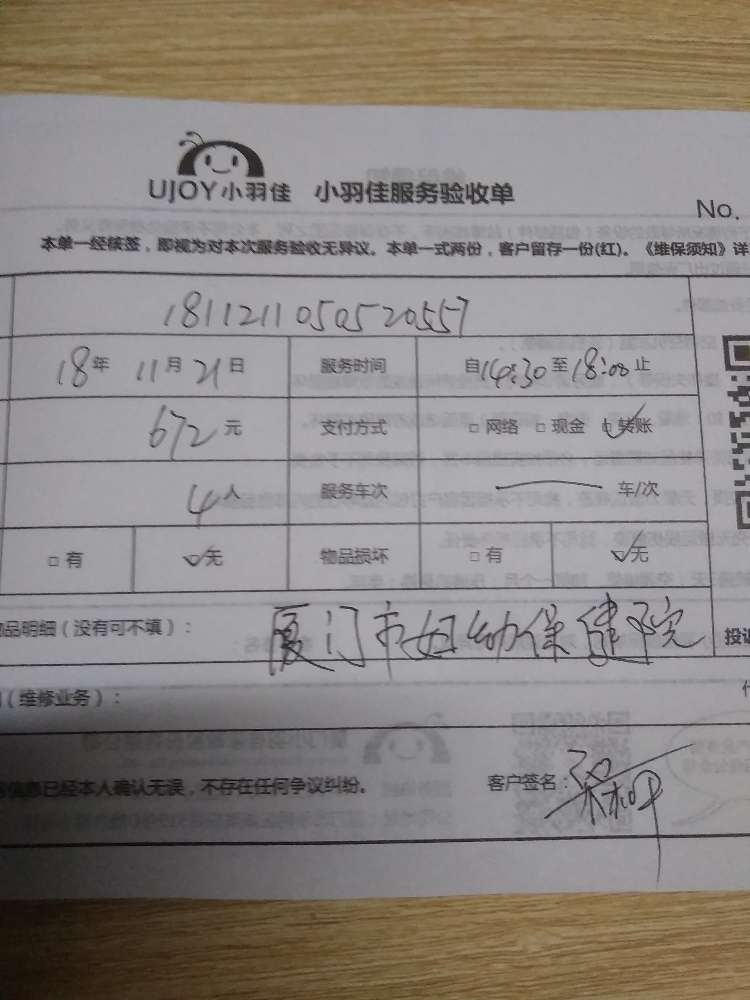 UJOY小羽佳 小羽佳服务验收单
No.
本单一经核签，即视为对本次服务验收无异议。本单一式两份，客户留存一份(红)。《维保须知》详
1811211050520557
18年 11月 21日 服务时间 自14:30至18:00止
672元 支付方式 □ 网络 □ 现金 ☑ 转账
4人 服务车次 车/次
□ 有 ☑ 无 物品损坏 □ 有 ☑ 无
品明细（没有可不填）： 厦门市妇幼保健院 投诉
（维修业务）：
信息已经本人确认无误，不存在任何争议纠纷。 客户签名：